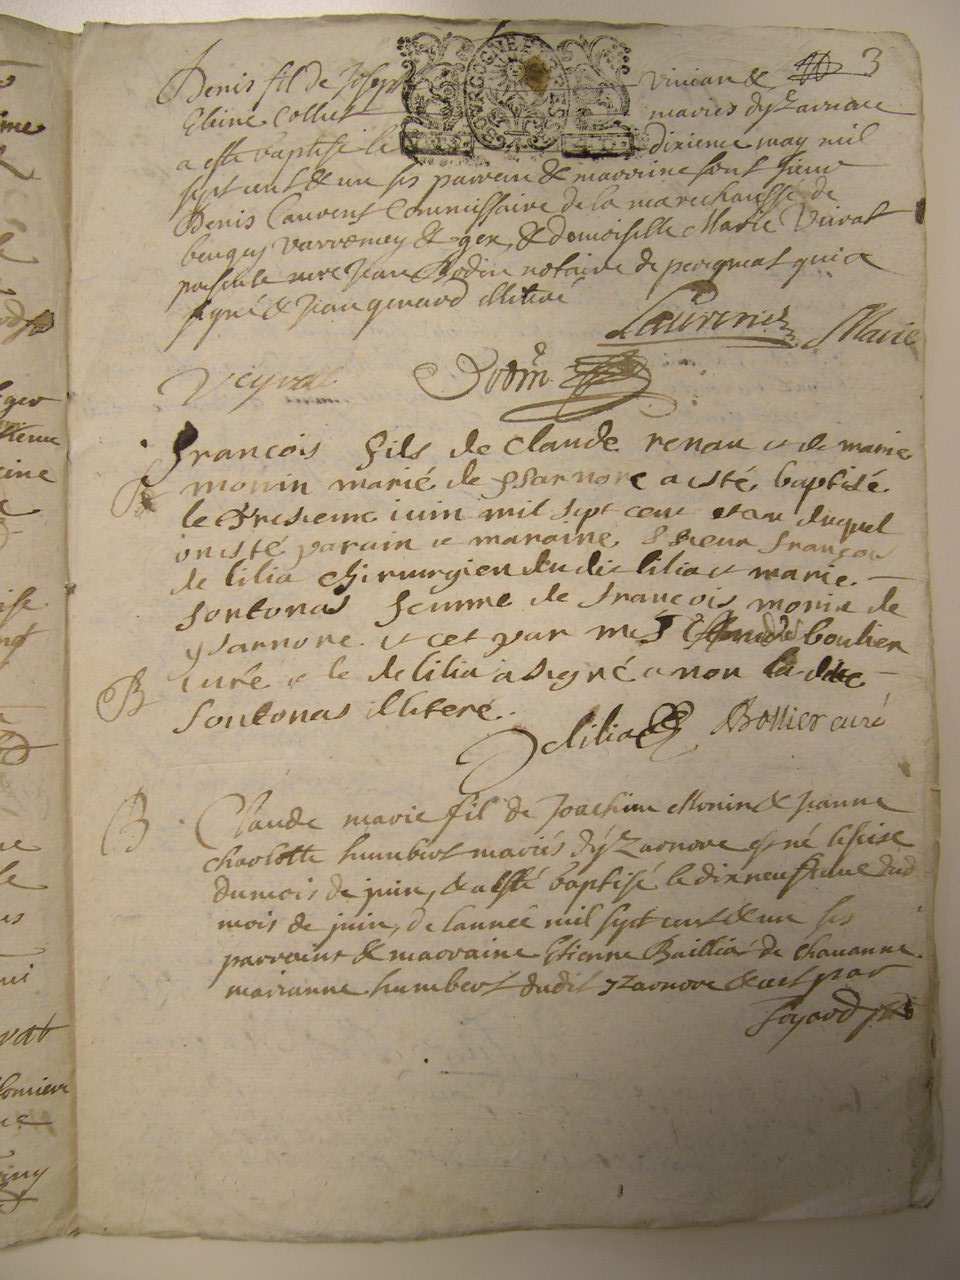 Denis fil de Joseph Vivian & 3
Etiene Collet mariés d'yzarnore
a esté baptisé le dixieme may mil
sept cent & un ses parrain & marraine sont sieur
Denis Laurent Commissaire de la marechaussé de
beugey varromey & gex, & demoiselle Marie Veirat
Jean Bodin notaire de perignat qui a
signé & Jean genard illiteré
Laurent Marie
Veyrat Bodin
François fils de Claude renau et de marie
monin marié de ysarnore a esté baptisé
le treisieme iuin mil sept cent et un duquel
on esté parain et maraine Sieur François
de lilia chirurgien dudit lilia et marie
fontonas femme de françois monin de
ysarnore et cet par moy boulier
B curé et le delilia a signé et non la dite
fontonas illiteré.
delilia Bollier curé
B Claude marie fil de Joachim Monin & Jeanne
charlotte humbert mariés d'yzarnore est né le seise
du mois de juin, & a esté baptisé le dixneufieme dud
mois de juin, de lannée mil sept cent & un ses
parraint & marraine Etienne Bailliat de chavanne
marianne humbert dudit yzarnore & cet par